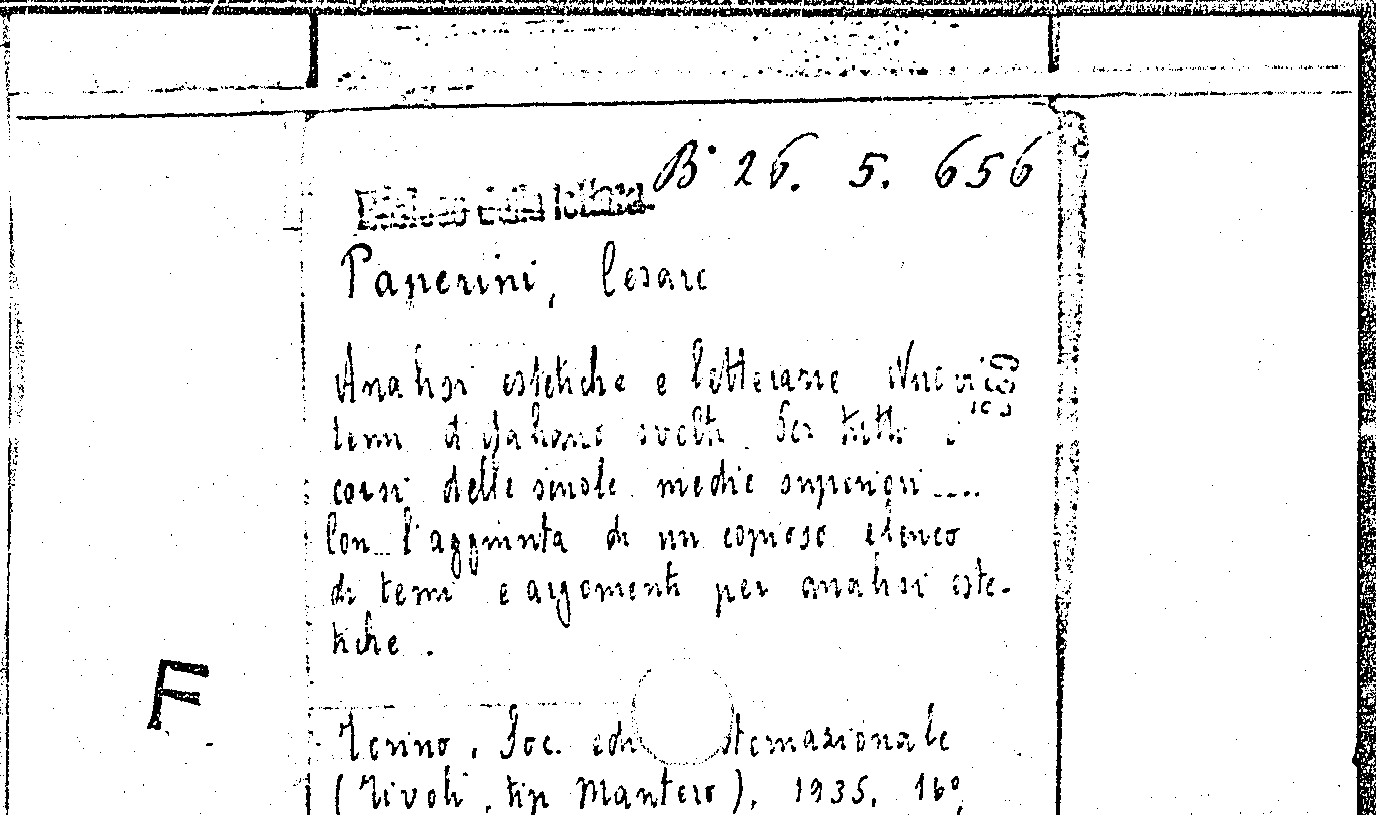 B° 26. 5. 656
Paperini, Cesare
Analisi estetiche e letterarie Nuovi
temi d'italiano svolti. Per tutti i
corsi delle scuole medie superiori ....
Con l'aggiunta di un copioso elenco
di temi e argomenti per analisi este-
tiche.
F
Torino, Soc. edi ternazionale
(Rivoli, tip Mantero), 1935, 16°,